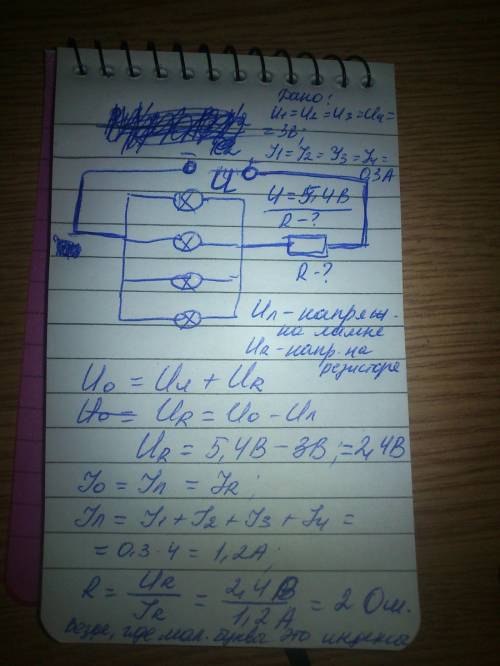 Дано:
U1 = U2 = U3 = U4 =
= 3В;
I1 = I2 = I3 = I4 =
0,3А
U
U = 5,4В
R - ?
R - ?
Uл - напряж-
на лампе
UR - напр. на
резисторе
U0 = Uл + UR
U0 = UR = U0 - Uл
UR = 5,4В - 3В; = 2,4В
I0 = Iл = IR;
Iл = I1 + I2 + I3 + I4 =
= 0,3 · 4 = 1,2А;
R = UR / IR = 2,4В / 1,2А = 2 Ом.
Везде, где мал. буква это индекс